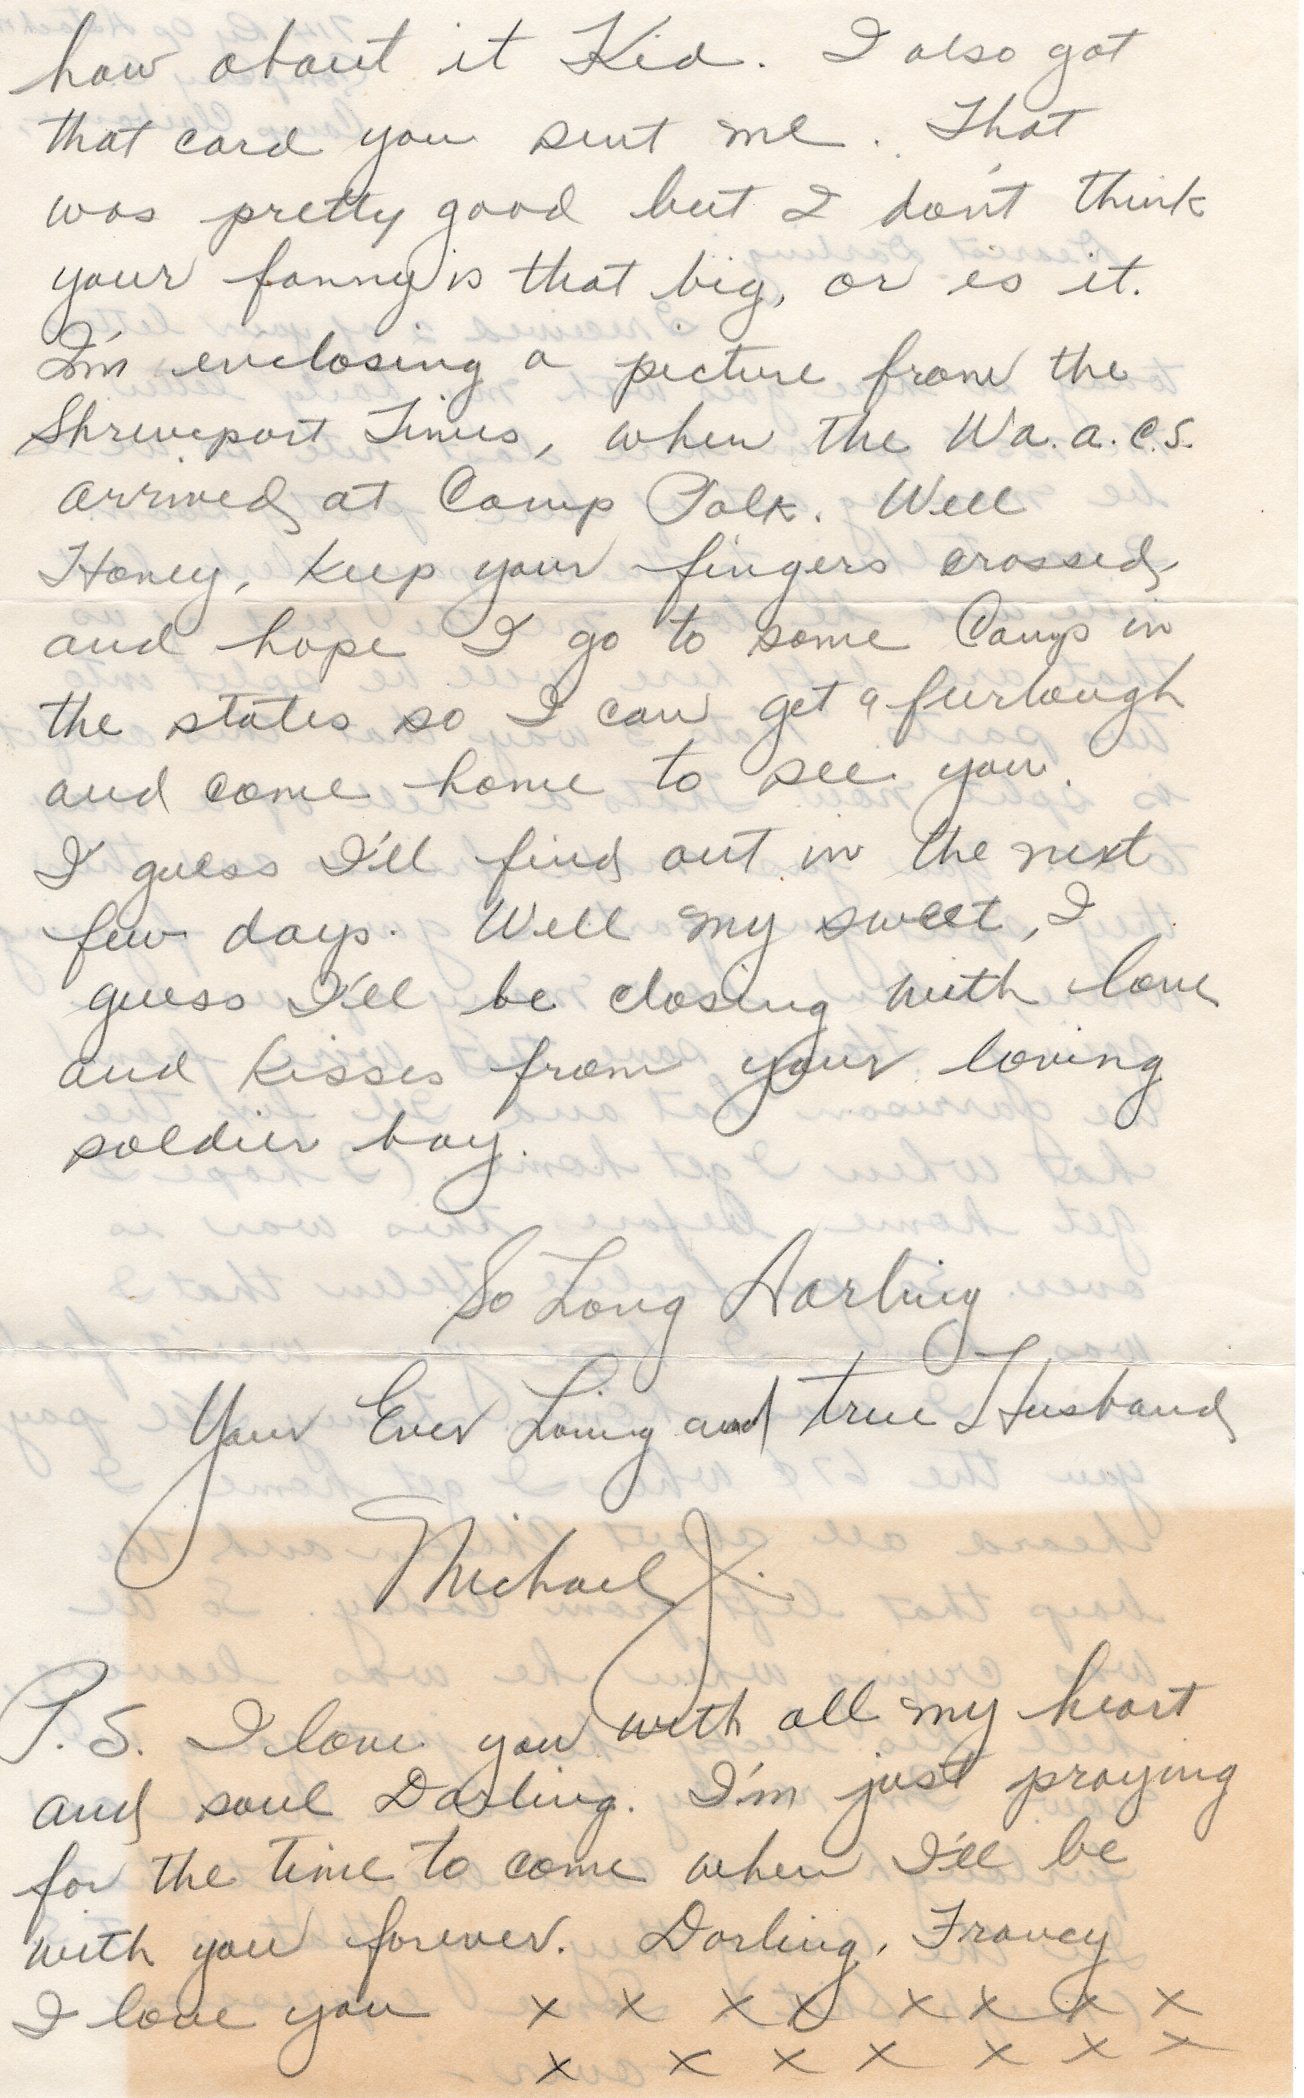 how about it Kid. I also got
that card you sent me. That
was pretty good but I don't think
your fanny is that big, or is it.
I'm enclosing a picture from the
Shreveport Times, when the Wa.a.c.s.
arrived at Camp Polk. Well
Honey, keep your fingers crossed
and hope I go to some Camp in
the states so I can get a furlough
and come home to see you.
I guess I'll find out in the next
few days. Well my sweet, I
guess I'll be closing with love
and kisses from your loving
soldier boy.
So Long Darling
Your Ever Loving and true Husband
Michael J.
P.S. I love you with all my heart
and soul Darling. I'm just praying
for the time to come when I'll be
with you forever. Darling, Francy
I love you x x x x x x x x
x x x x x x x